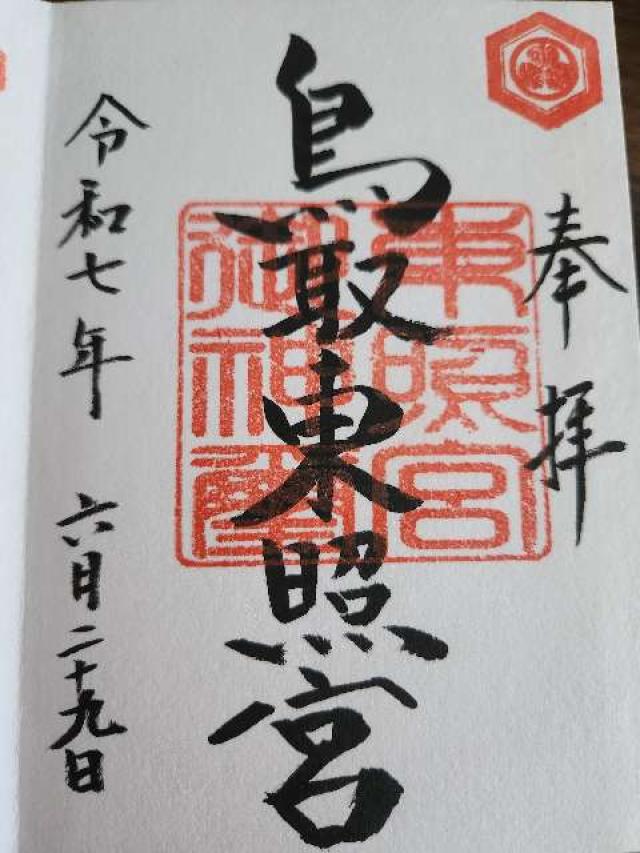 奉拝
鳥取東照宮
東照宮
御神璽
令和七年 六月二十九日